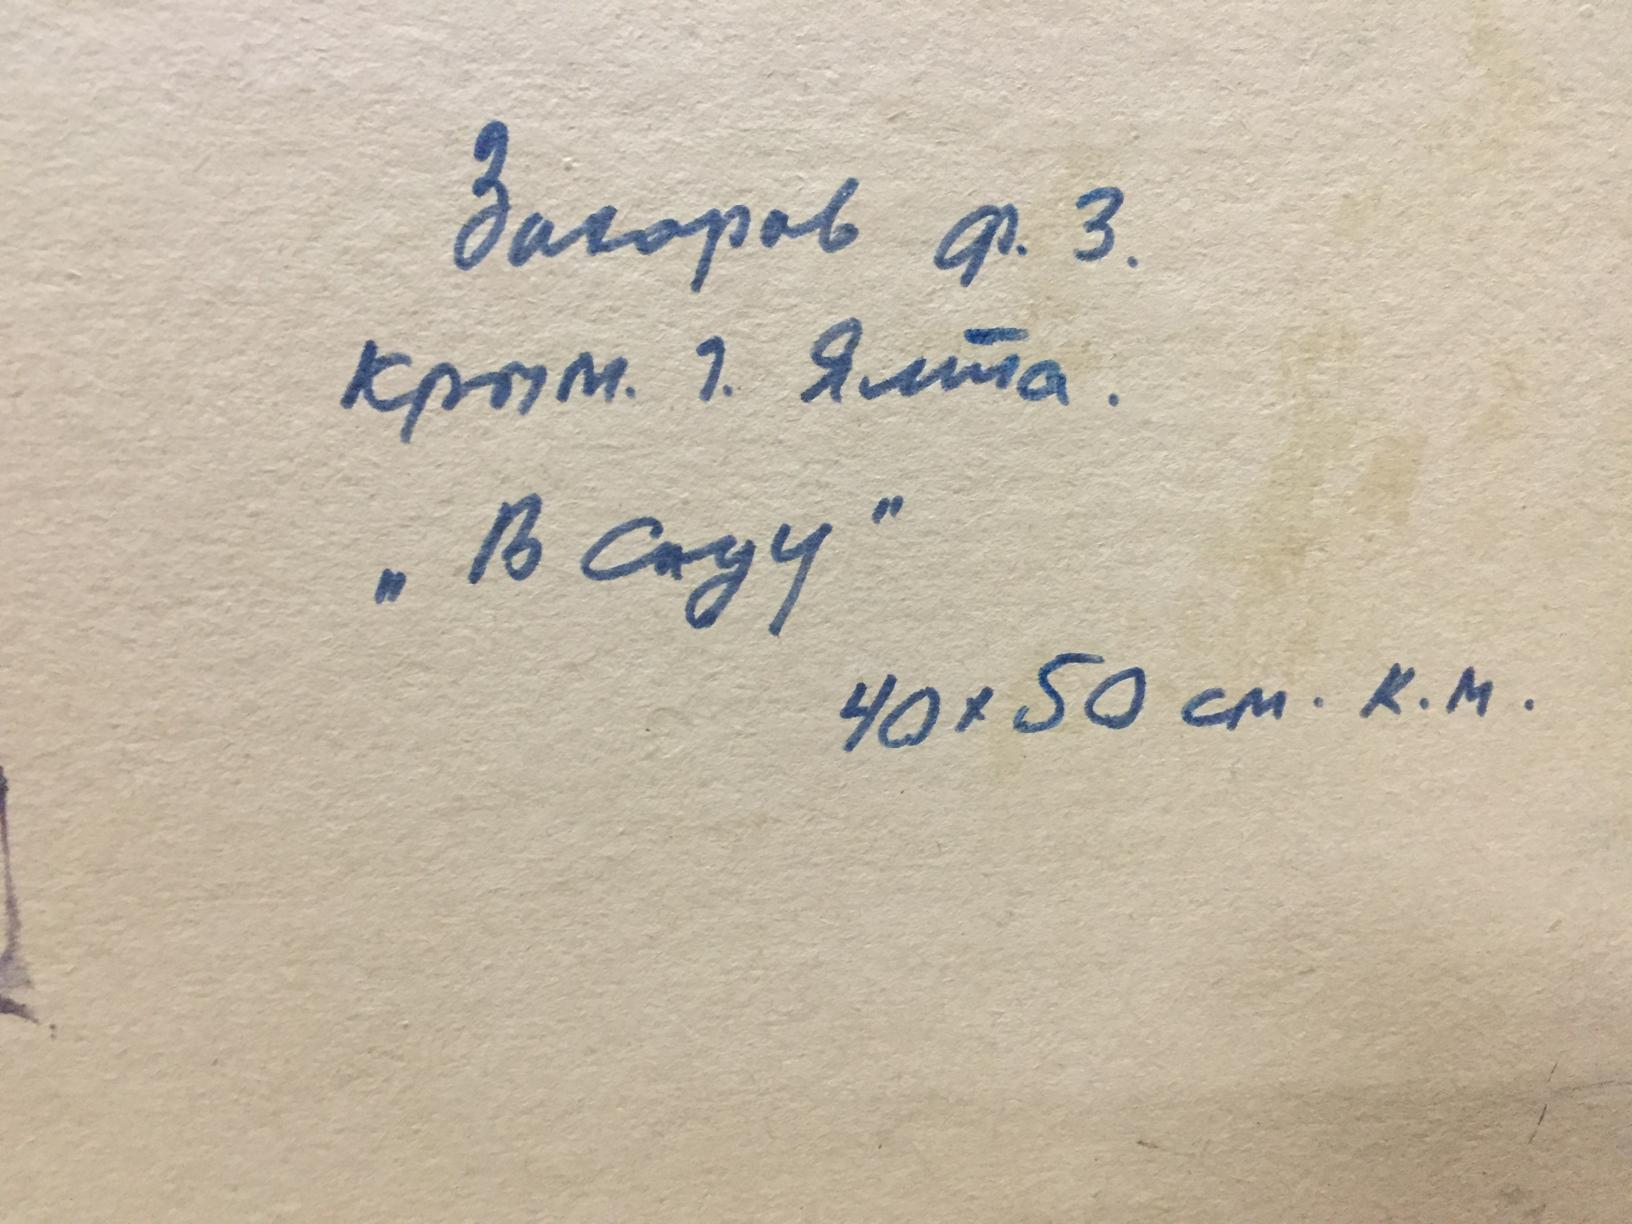 Захаров Ф. З.
Крым. г. Ялта.
„В саду"
40 х 50 см. к.м.